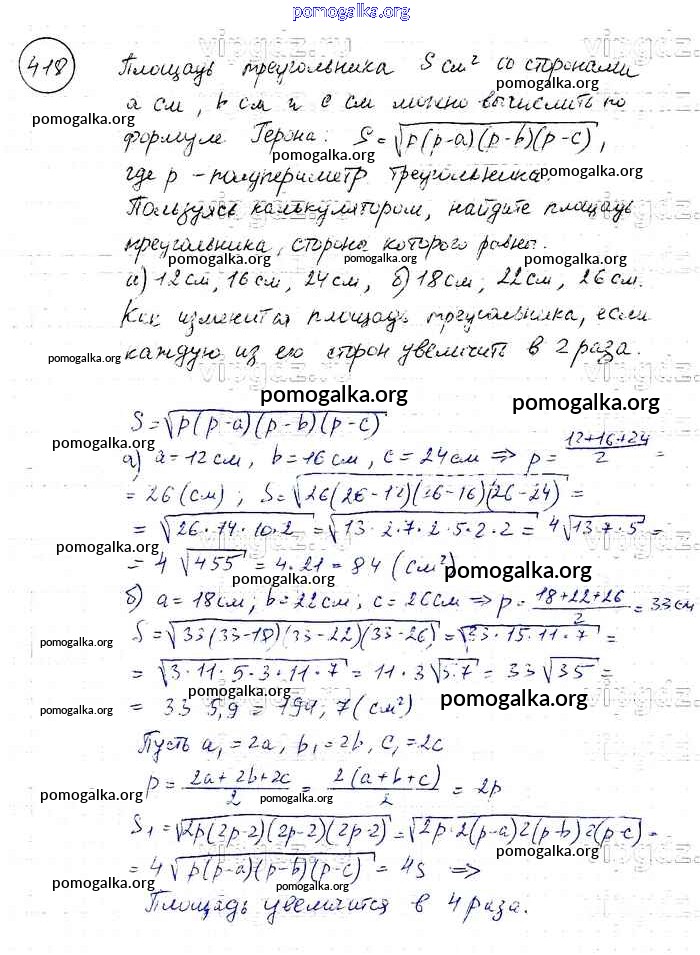 pomogalka.org
418
Площадь треугольника S см² со сторонами
a см, b см и c см можно вычислить по
формуле Герона: S=√p(p-a)(p-b)(p-c),
где p - полупериметр треугольника.
Пользуясь калькулятором, найдите площадь
треугольника, стороны которого равны:
а) 12 см, 16 см, 24 см, б) 18 см, 22 см, 26 см.
Как изменится площадь треугольника, если
каждую из его сторон увеличить в 2 раза.
S=√p(p-a)(p-b)(p-c)
а) a=12 см, b=16 см, c=24 см ⇒ p= (12+16+24)/2 =
= 26 (см) ; S=√26(26-12)(26-16)(26-24) =
= √26·14·10·2 = √13·2·7·2·5·2·2 = 4√13·7·5 =
= 4 √455 = 4·21=84 (см²)
б) a=18 см; b=22 см; c=26 см ⇒ p= (18+22+26)/2 = 33 см
S=√33(33-18)(33-22)(33-26) = √33·15·11·7 =
= √3·11·5·3·11·7 = 11·3√5·7 = 33√35 =
= 33 5,9 = 194,7 (см²)
Пусть a₁=2a, b₁=2b, c₁=2c
P= (2a+2b+2c)/2 = 2(a+b+c)/2 = 2p
S₁=√2p(2p-2)(2p-2)(2p-2)=√2p·2(p-a)2(p-b)2(p-c) =
= 4√p(p-a)(p-b)(p-c) = 4S ⇒
Площадь увеличится в 4 раза.